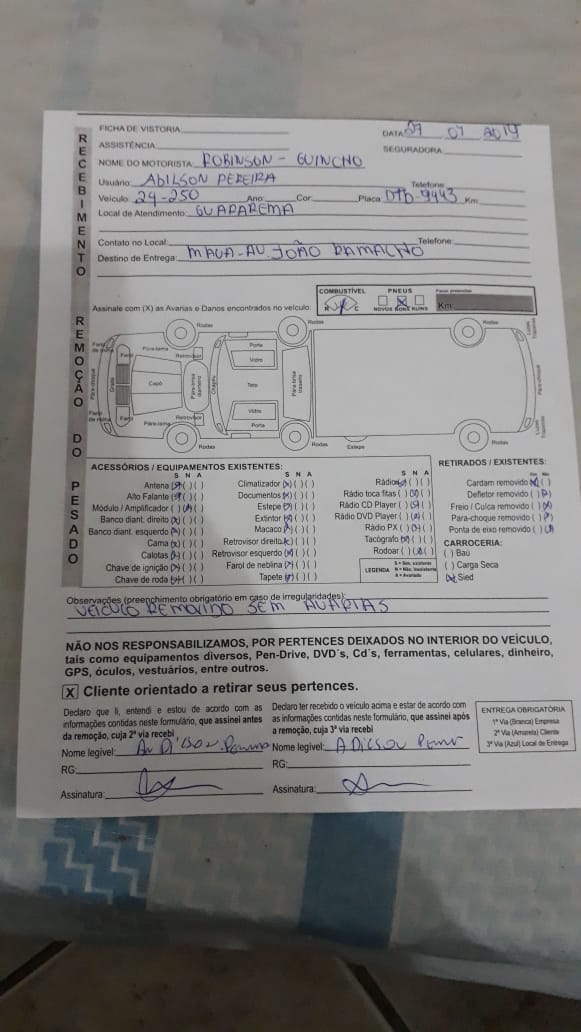 RECEBIMENTO
FICHA DE VISTORIA
DATA: 07 07 2019
ASSISTÊNCIA
SEGURADORA
NOME DO MOTORISTA ROBINSON - GUINCHO
Usuário: ADILSON PEREIRA Telefone
Veículo: 24-250 Ano: Cor: Placa DTB-9443 Km
Local de Atendimento: GUARAREMA
Contato no Local: Telefone:
Destino de Entrega: MAUA-AV JOÃO RAMALHO
REMOÇÃO DO PESADO
COMBUSTÍVEL PNEUS
R C NOVOS BONS RUINS Km:
Assinale com (X) as Avarias e Danos encontrados no veículo:
Rodas Rodas
Farol de milha Para-lama Retrovisor Porta
Para-choque Grade Farol Capô Para-brisa dianteiro Chapéu Vidro Teto Para-brisa traseiro Para-choque
Farol de milha Farol Retrovisor Vidro Luzes Traseiras
Para-lama Porta
Rodas Rodas Estepe Rodas
ACESSÓRIOS / EQUIPAMENTOS EXISTENTES:
S N A
Antena (X) ( ) ( )
Alto Falante (X) ( ) ( )
Módulo / Amplificador ( ) (X) ( )
Banco diant. direito (X) ( ) ( )
Banco diant. esquerdo (X) ( ) ( )
Cama (X) ( ) ( )
Calotas (X) ( ) ( )
Chave de ignição (X) ( ) ( )
Chave de roda (X) ( ) ( )
S N A
Climatizador (X) ( ) ( )
Documentos (X) ( ) ( )
Estepe (X) ( ) ( )
Extintor (X) ( ) ( )
Macaco (X) ( ) ( )
Retrovisor direito (X) ( ) ( )
Retrovisor esquerdo (X) ( ) ( )
Farol de neblina (X) ( ) ( )
Tapete (X) ( ) ( )
S N A
Rádio (X) ( ) ( )
Rádio toca fitas ( ) (X) ( )
Rádio CD Player ( ) (X) ( )
Rádio DVD Player ( ) (X) ( )
Rádio PX ( ) (X) ( )
Tacógrafo (X) ( ) ( )
Rodoar ( ) (X) ( )
LEGENDA S = Sim, existente
N = Não, inexistente
A = Avariado
RETIRADOS / EXISTENTES:
Sim Não
Cardam removido (X) ( )
Defletor removido ( ) (X)
Freio / Cuíca removido ( ) (X)
Para-choque removido ( ) (X)
Ponta de eixo removido ( ) (X)
CARROCERIA:
( ) Baú
( ) Carga Seca
(X) Sied
Observações (preenchimento obrigatório em caso de irregularidades):
VEICULO REMOVIDO SEM AVARIAS
NÃO NOS RESPONSABILIZAMOS, POR PERTENCES DEIXADOS NO INTERIOR DO VEÍCULO,
tais como equipamentos diversos, Pen-Drive, DVD´s, Cd´s, ferramentas, celulares, dinheiro,
GPS, óculos, vestuários, entre outros.
X Cliente orientado a retirar seus pertences.
Declaro que li, entendi e estou de acordo com as
informações contidas neste formulário, que assinei antes
da remoção, cuja 2ª via recebi
Nome legível:
RG:
Assinatura:
Declaro ter recebido o veículo acima e estar de acordo com
as informações contidas neste formulário, que assinei após
a remoção, cuja 3ª via recebi
Nome legível: ADILSON
RG:
Assinatura:
ENTREGA OBRIGATÓRIA
1ª Via (Branca) Empresa
2ª Via (Amarela) Cliente
3ª Via (Azul) Local de Entrega